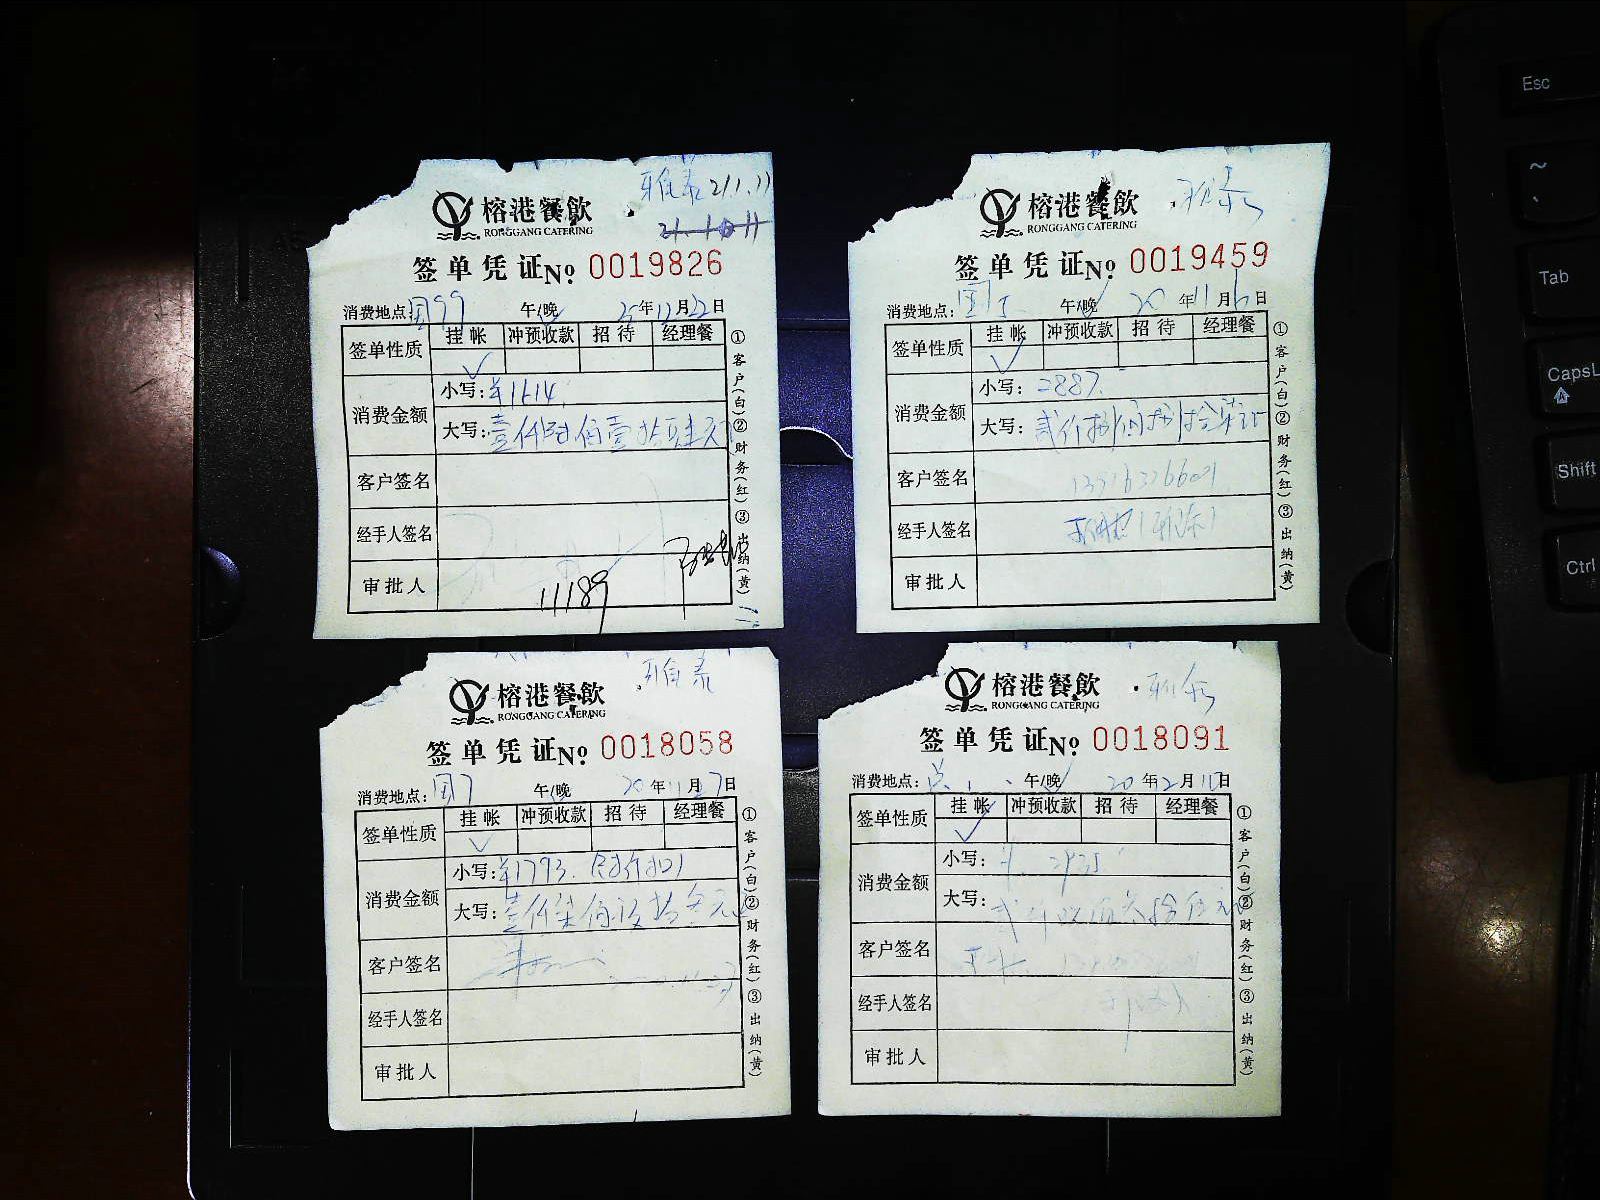 雅泰 21.1.11
榕港餐飲
RONGGANG CATERING
签单凭证 No 0019826
消费地点: 国99 午/晚 20年11月22日
签单性质 挂帐 冲预收款 招待 经理餐
消费金额 小写: ¥1614.
大写: 壹仟陆佰壹拾肆元
客户签名
经手人签名
审批人 11189
①客户(白)②财务(红)③出纳(黄)
雅泰
榕港餐飲
RONGGANG CATERING
签单凭证 No 0019459
消费地点: 午/晚 20年11月6日
签单性质 挂帐 冲预收款 招待 经理餐
消费金额 小写: 2887.
大写: 贰仟捌佰捌拾柒元
客户签名
经手人签名
审批人
①客户(白)②财务(红)③出纳(黄)
雅泰
榕港餐飲
RONGGANG CATERING
签单凭证 No 0018058
消费地点: 国7 午/晚 20年11月7日
签单性质 挂帐 冲预收款 招待 经理餐
消费金额 小写: ¥1793.
大写: 壹仟柒佰玖拾叁元
客户签名
经手人签名
审批人
①客户(白)②财务(红)③出纳(黄)
雅泰
榕港餐飲
RONGGANG CATERING
签单凭证 No 0018091
消费地点: 午/晚 20年12月 日
签单性质 挂帐 冲预收款 招待 经理餐
消费金额 小写: ¥
大写:
客户签名
经手人签名
审批人
①客户(白)②财务(红)③出纳(黄)
Esc
~
Tab
CapsL
Shift
Ctrl